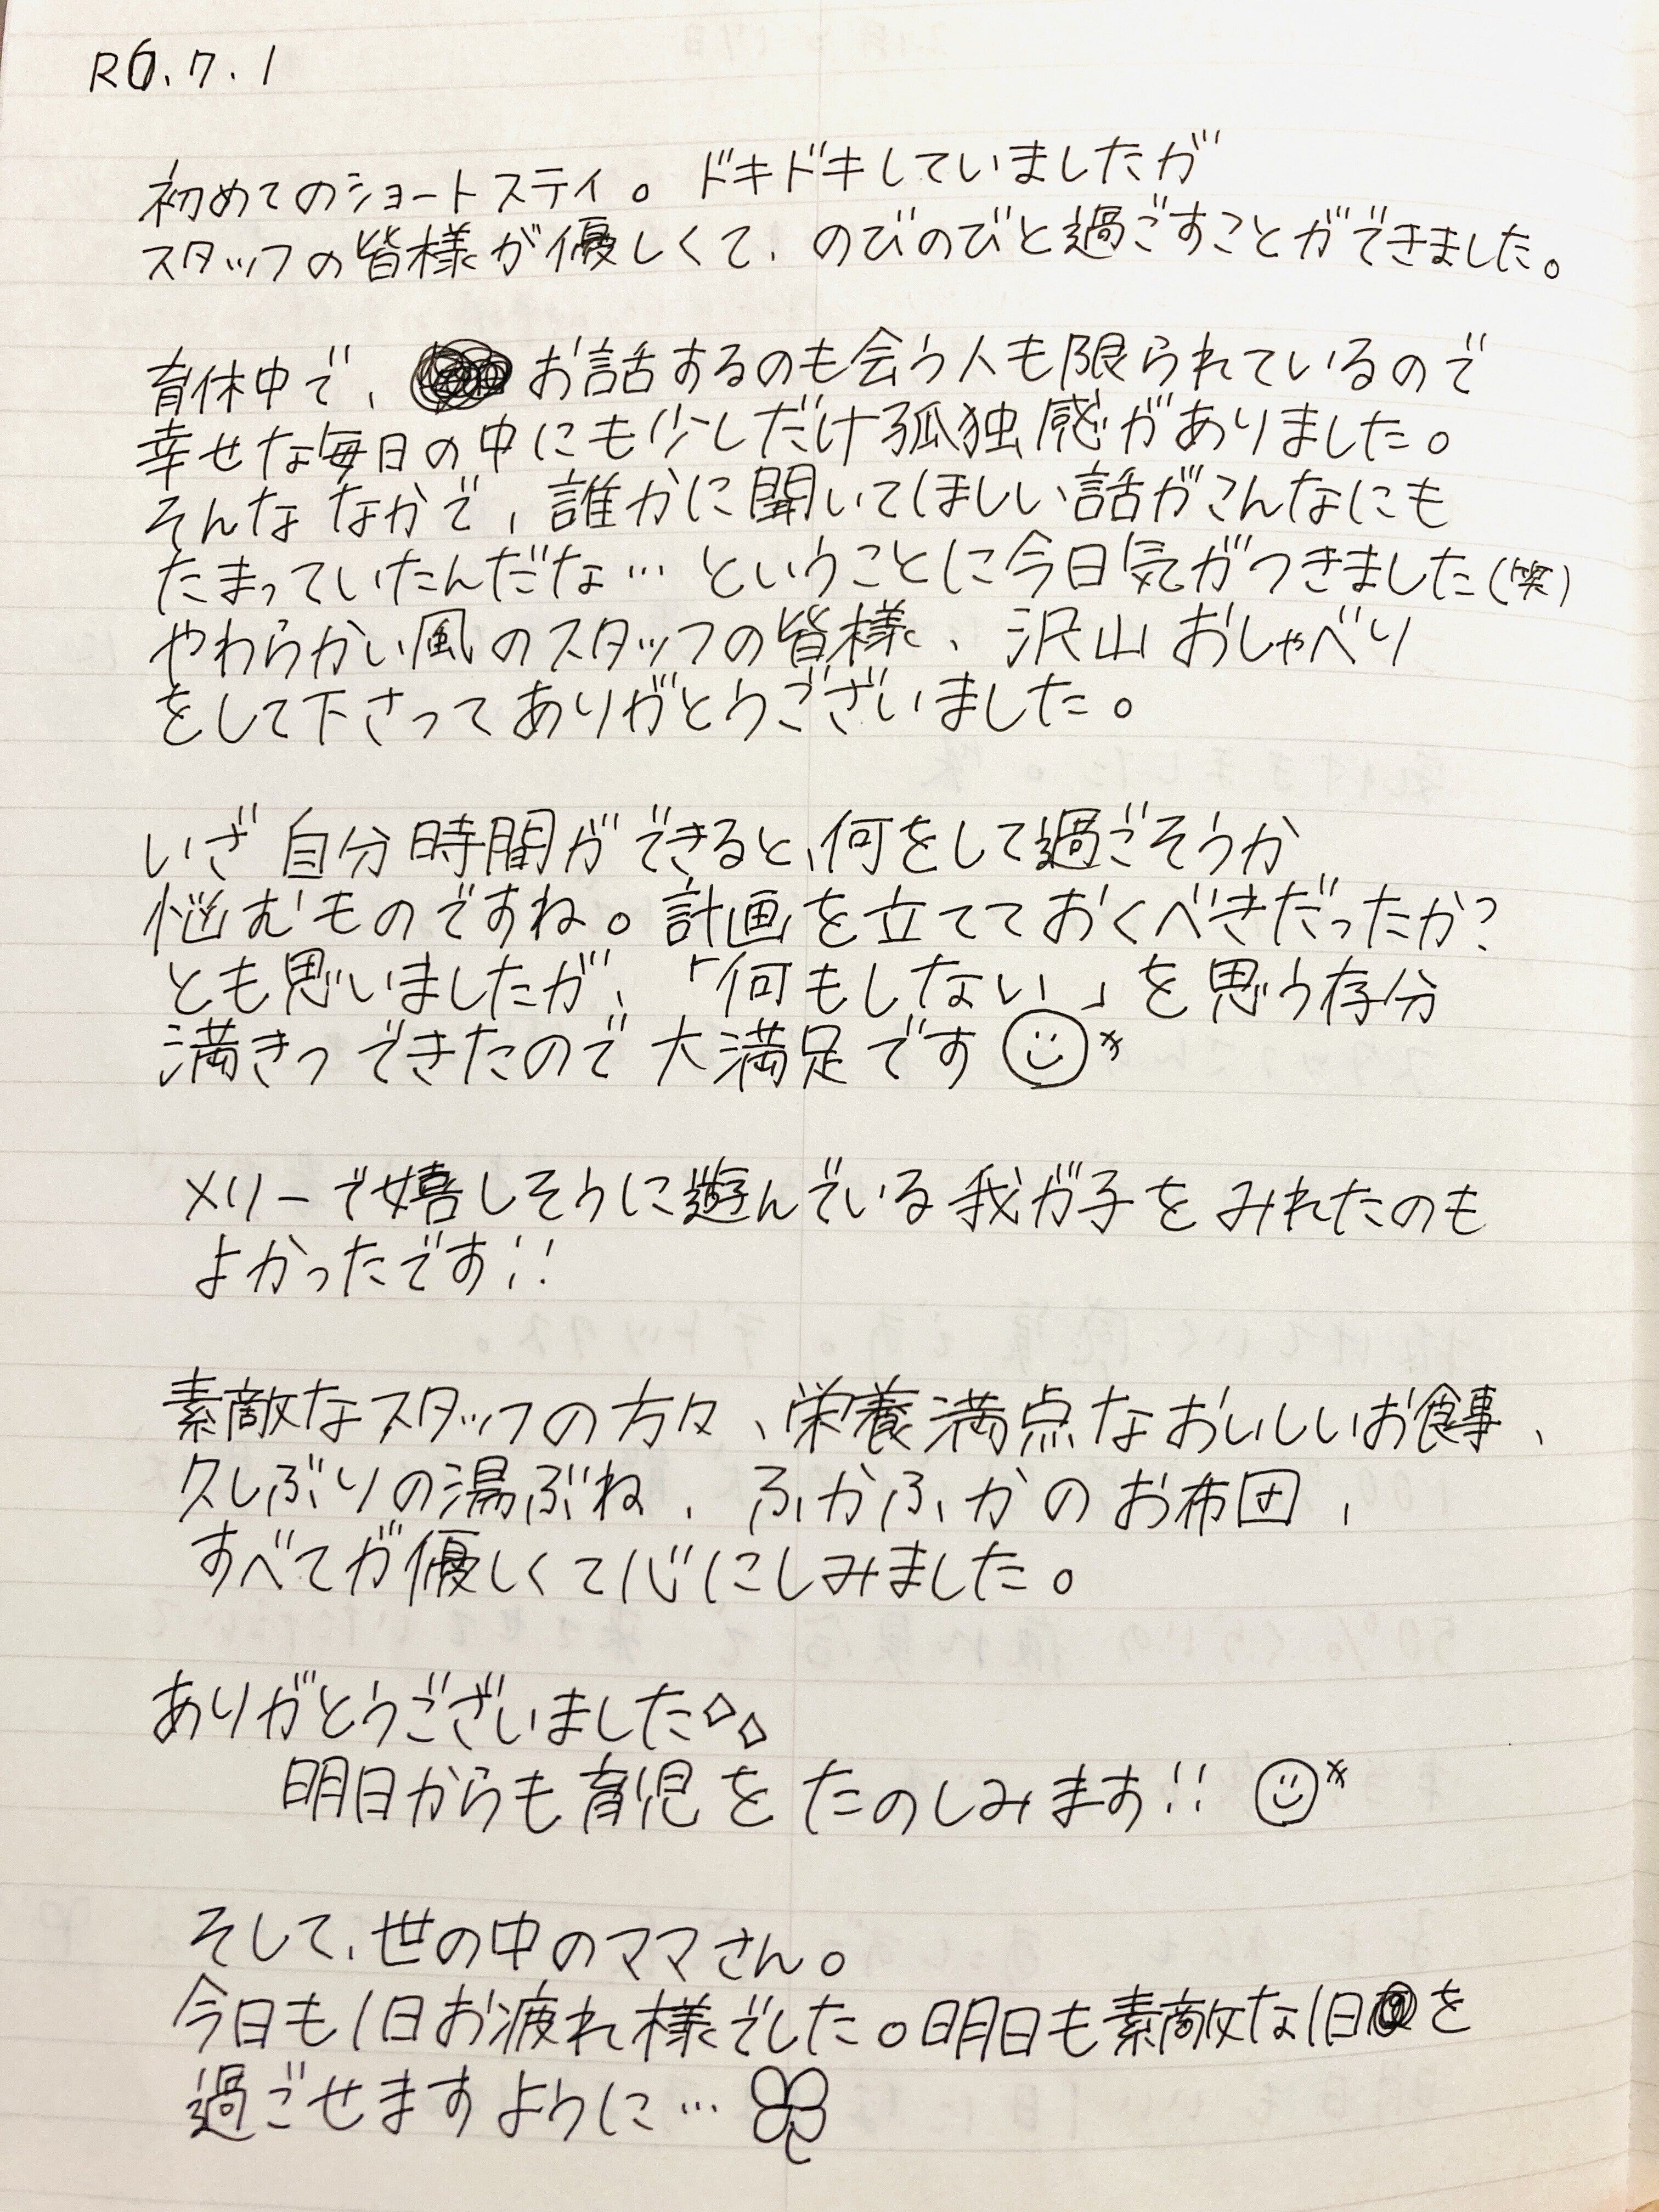 R6.7.1
初めてのショートステイ。ドキドキしていましたが
スタッフの皆様が優しくて、のびのびと過ごすことができました。
育休中で、お話するのも会う人も限られているので
幸せな毎日の中にも少しだけ孤独感がありました。
そんななかで、誰かに聞いてほしい話がこんなにも
たまっていたんだな…ということに今日気がつきました(笑)
やわらかい風のスタッフの皆様、沢山おしゃべり
をして下さってありがとうございました。
いざ自分時間ができると、何をして過ごそうか
悩むものですね。計画を立てておくべきだったか?
とも思いましたが、「何もしない」を思う存分
満きつできたので大満足です
メリーで嬉しそうに遊んでいる我が子をみれたのも
よかったです!!
素敵なスタッフの方々、栄養満点なおいしいお食事、
久しぶりの湯ぶね、ふかふかのお布団、
すべてが優しくて心にしみました。
ありがとうございました
明日からも育児をたのしみます!!
そして、世の中のママさん。
今日も1日お疲れ様でした。明日も素敵な1日を
過ごせますように…